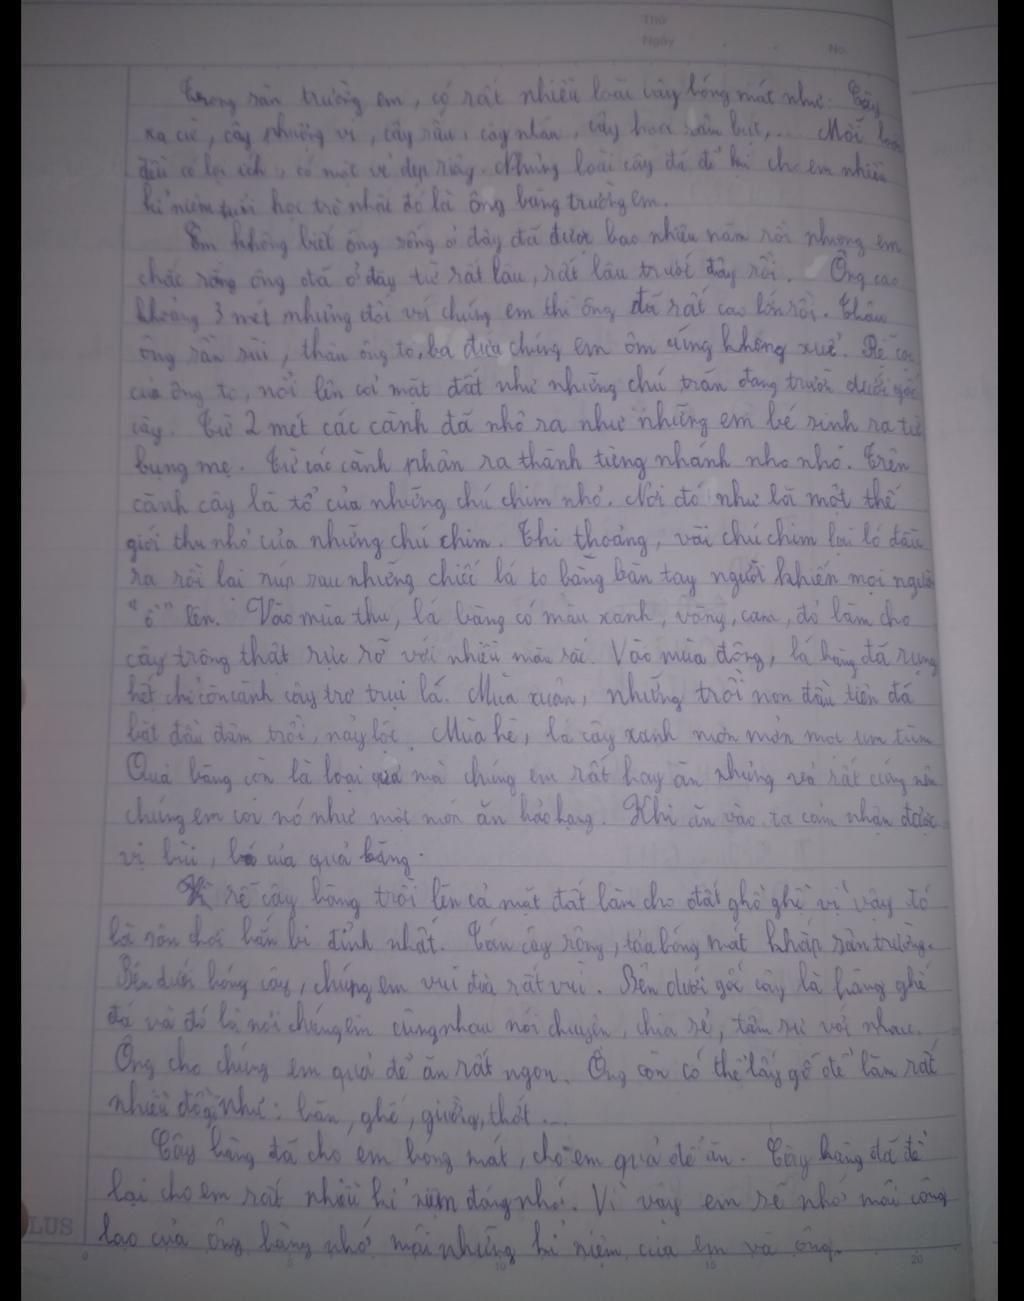 Thứ
Ngày
No.
Trong sân trường em, có rất nhiều loài cây bóng mát như: Cây
xà cừ, cây phượng vĩ, cây sấu, cây nhãn, cây hoa râm bụt,... Mỗi loài
đều có lợi ích, có một vẻ đẹp riêng. Những loài cây đã để lại cho em nhiều
kỉ niệm tuổi học trò nhất đó là ông bàng trường em.
Em không biết ông sống ở đây đã được bao nhiêu năm rồi nhưng em
chắc rằng ông đã ở đây từ rất lâu, rất lâu trước đây rồi. Ông cao
khoảng 3 mét nhưng đối với chúng em thì ông đã rất cao lớn rồi. Thân
ông sần sùi, thân ông to, ba đứa chúng em ôm cũng không xuể. Rễ
của ông to, nổi lên cả mặt đất như những chú trăn đang trườn dưới gốc
cây. Từ 2 mét các cành đã nhô ra như những em bé sinh ra từ
bụng mẹ. Từ các cành phân ra thành từng nhánh nho nhỏ. Trên
cành cây là tổ của những chú chim nhỏ. Nơi đó như là một thế
giới thu nhỏ của những chú chim. Thi thoảng, vài chú chim lại ló đầu
ra rồi lại núp sau những chiếc lá to bằng bàn tay người khiến mọi người
"ồ" lên. Vào mùa thu, lá bàng có màu xanh, vàng, cam, đỏ làm cho
cây trông thật rực rỡ với nhiều màu sắc. Vào mùa đông, lá bàng đã rụng
hết chỉ còn cành cây trơ trụi lá. Mùa xuân, những trồi non đầu tiên đã
bắt đầu đâm trồi, nảy lộc. Mùa hè, lá cây xanh mơn mởn mọc um tùm
Quả bàng còn là loại quả mà chúng em rất hay ăn nhưng vỏ rất cứng nên
chúng em coi nó như một món ăn hảo hạng. Khi ăn vào ta cảm nhận được
vị bùi, béo của quả bàng.
Vì rễ cây bàng trồi lên cả mặt đất làm cho đất ghồ ghề vì vậy đó
là sân chơi bắn bi đỉnh nhất. Tán cây rộng, tỏa bóng mát khắp sân trường.
Bên dưới bóng cây, chúng em vui đùa rất vui. Bên dưới gốc cây là hàng ghế
đá và đó là nơi chúng em cùng nhau nói chuyện, chia sẻ, tâm sự với nhau.
Ông cho chúng em quả để ăn rất ngon. Ông còn có thể lấy gỗ để làm rất
nhiều đồ gỗ như: bàn, ghế, giường, thớt...
Cây bàng đã cho em bóng mát, cho em quả để ăn. Cây bàng đã để
lại cho em rất nhiều kỉ niệm đáng nhớ. Vì vậy em sẽ nhớ mãi công
lao của ông bàng nhớ mãi những kỉ niệm của em và ông.
LUS
0 5 10 15 20